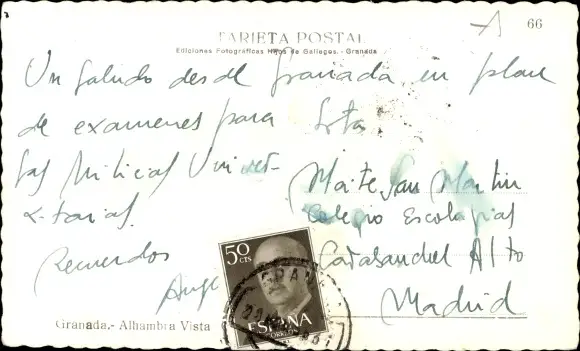 66
TARJETA POSTAL
Ediciones Fotográficas Hijos de Gallegos.- Granada
Un saludo desde Granada, en plan
de examenes para
las Milicias Univer-
sitarias.
Recuerdos
Srta
Maite San Martin
Colegio Escolapias
Carabanchel Alto
Madrid
50
CTS
CORREOS
ESPAÑA
Granada.- Alhambra Vista